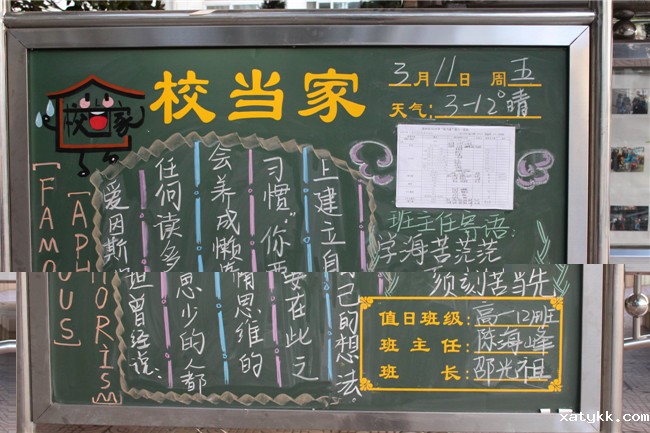 校当家
3月11日 周五
天气:3-12°晴
校 家
[FAMOUS]
[APHORISM]
爱因斯坦曾经说:
任何读多思少的人都
会养成懒惰思维的
习惯"你要在此之
上建立自己的想法
班主任寄语:
学海苦茫茫
须刻苦当先
值日班级:高一12班
班主任:陈海峰
班长:邵光祖
xatykk.com